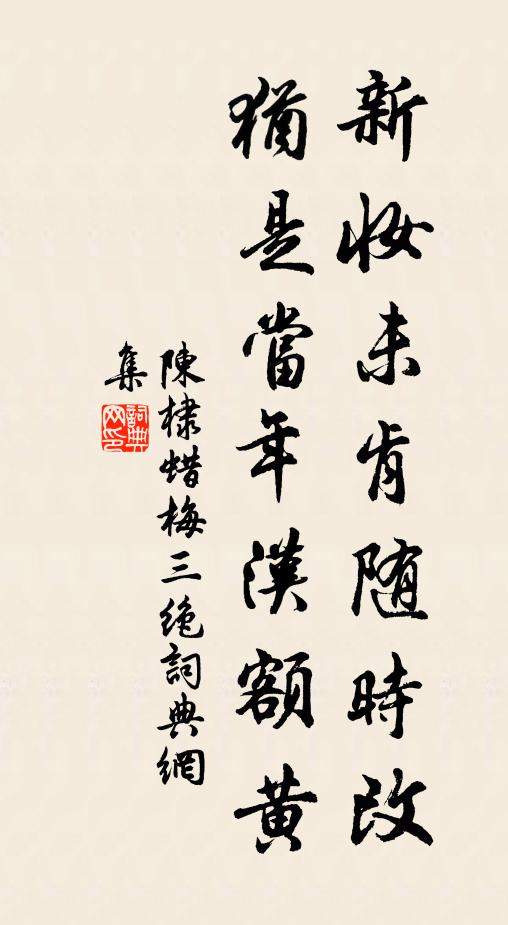 新妝未肯随時改
猶是當年漢額黄
陳棣蜡梅三絶詞典網
集
詞典
网印